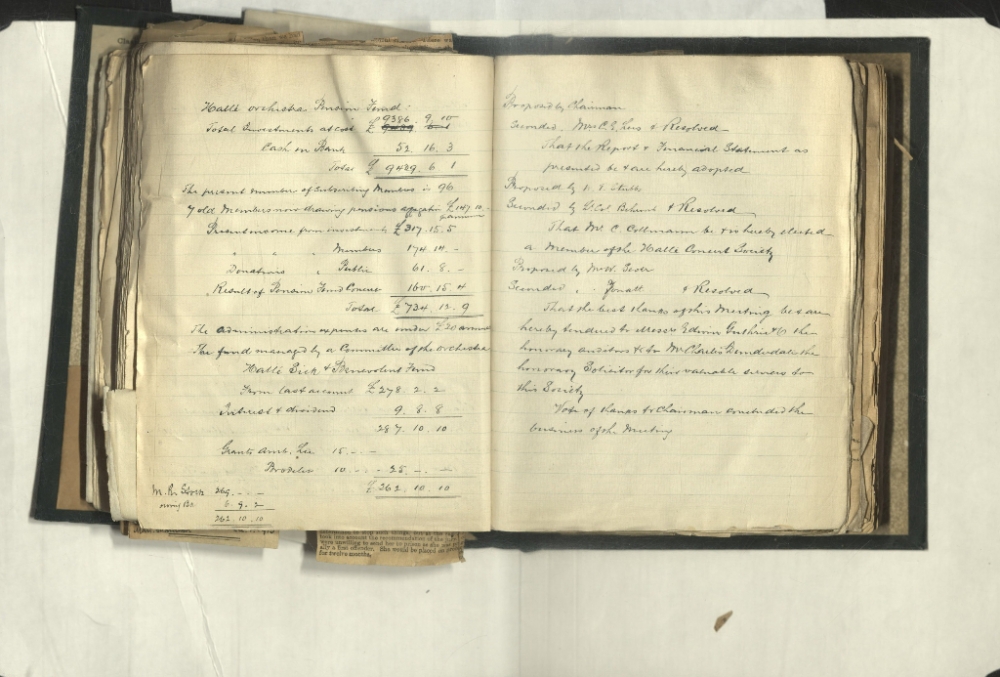 Hallé Orchestra Pension Fund.
Total Investments at cost £ 9386. 9. 10
Cash in Bank 52. 16. 3
Total £ 9439. 6 1
The present number of Subscribing Members is 96
7 old Members now drawing pensions £147. 10. -
Present income from investments £317. 15. 5
" " " Members 194. 14. -
Donations " Public 61. 8. -
" Result of Pension Fund Concert 160. 15. 4
Total £734. 12. 9
The administration expenses are under £20 annum
The fund managed by a Committee of the orchestra
Hallé Sick & Benevolent Fund
From last account £278. 2. 2
Interest & dividend 9. 8. 8
287. 10. 10
Grants Amb. Lee 15. - -
10. - - 25. - . -
£262. 10. 10
M. Rly Stock 259. - . -
3. 9. 2
262. 10. 10
Proposed by Chairman
Seconded " Mr C. E. Lees & Resolved
That the Report & Financial Statement as
presented be & are hereby adopted
Proposed by
Seconded by Lt Col & Resolved
That Mr C. Collmann be & is hereby elected
a Member of the Hallé Concert Society
Proposed by Mr
Seconded " " & Resolved
That the best thanks of this Meeting be & are
hereby tendered to Messrs Edwin Guthrie & Co the
honorary auditors & to Mr Charles the
honorary Solicitor for their valuable services to
this Society
Vote of thanks to Chairman concluded the
business of the Meeting
took into account the recommendation of the
were unwilling to send her to prison as she
ally a first offender. She would be placed
for twelve months.